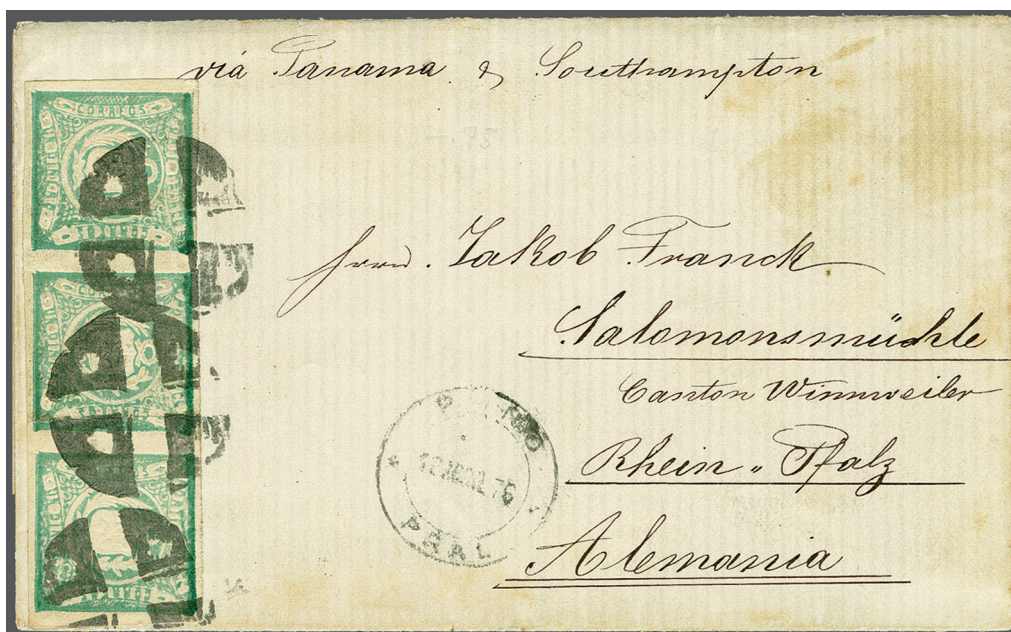 via Panama & Southampton
75
Herrn. Jakob Franck
Salomonsmühle
Canton Winnweiler
Rhein „ Pfalz
Alemania
CORREOS
PRAL